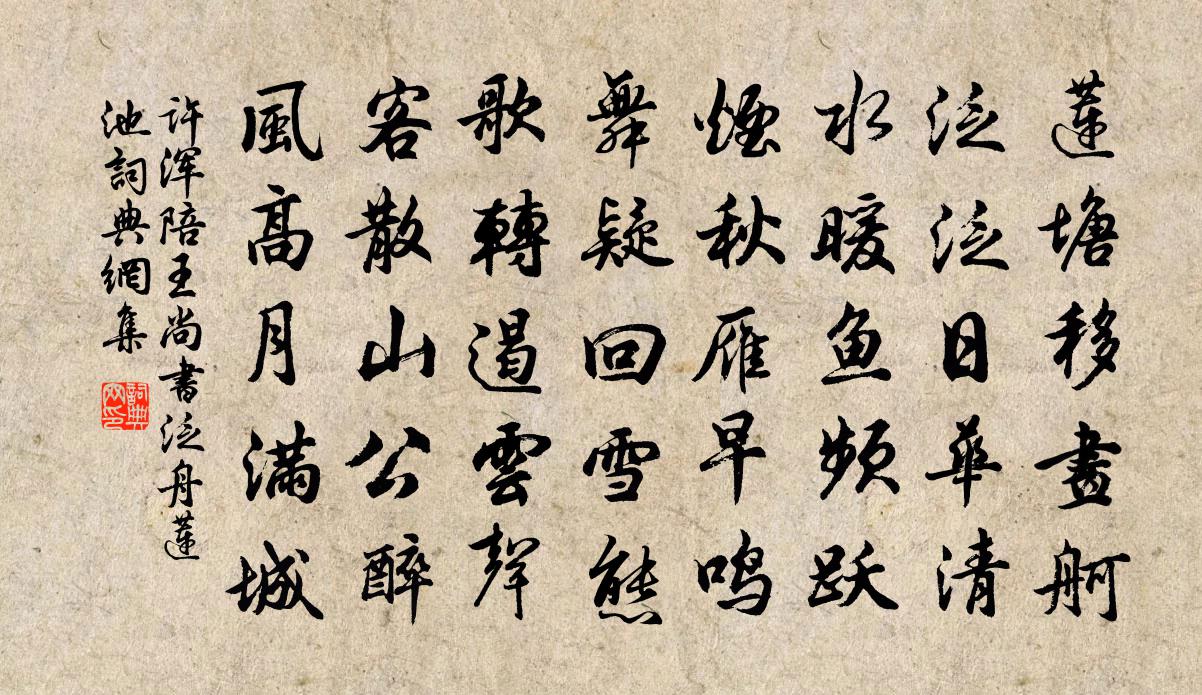 蓮塘移畫舸
泛泛日華清
水暖魚頻跃
煙秋雁早鸣
舞疑回雪態
歌轉遏雲聲
客散山公醉
風高月滿城
許浑陪王尚書泛舟蓮
池詞典網集
詞典
网印